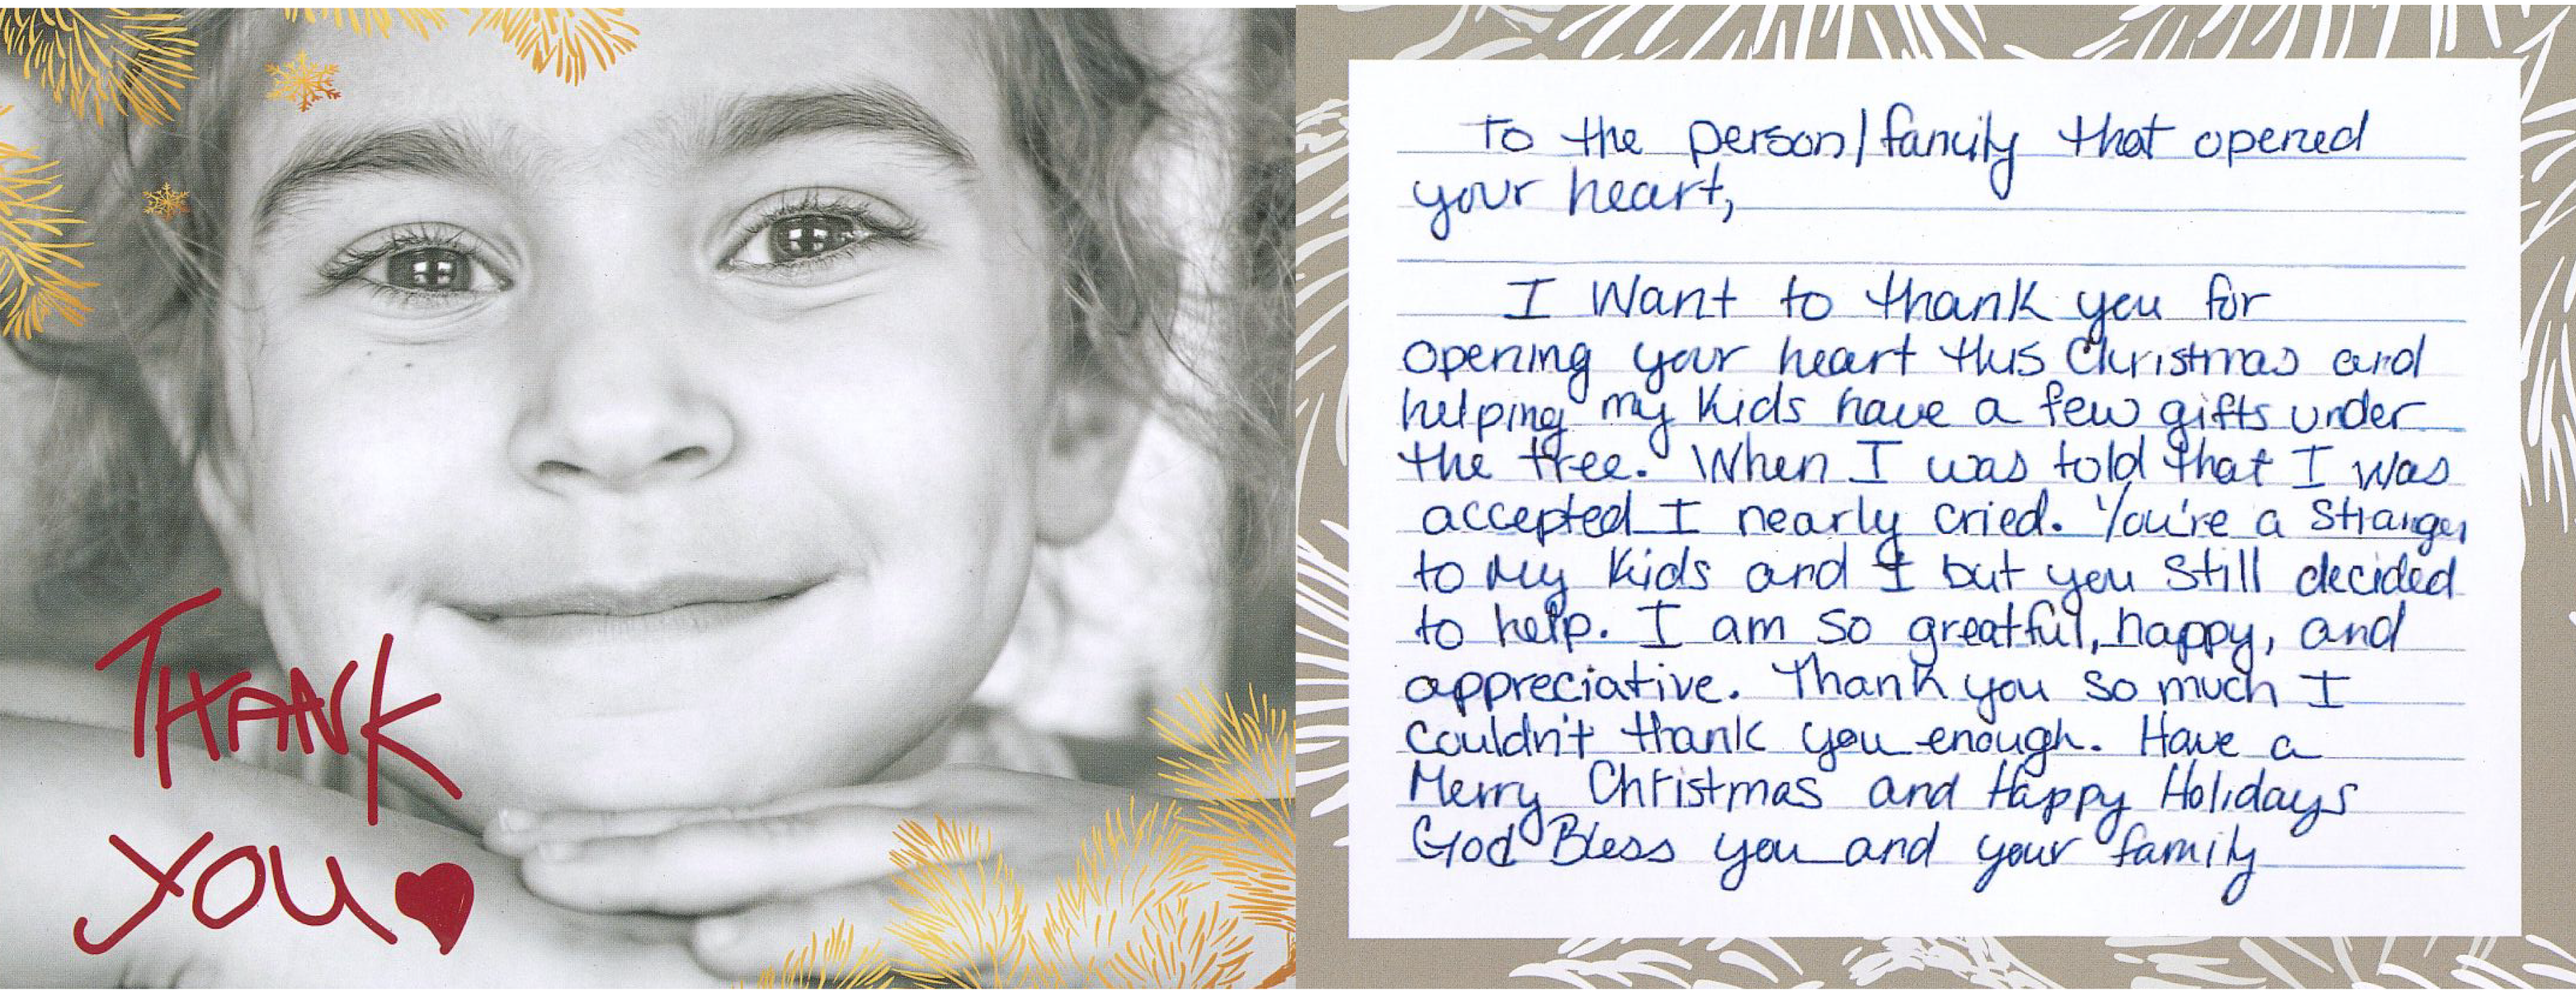 THANK
YOU
To the person/family that opened
your heart,
I Want to thank you for
opening your heart this Christmas and
helping my kids have a few gifts under
the tree. When I was told that I was
accepted I nearly cried. You're a Stranger
to my kids and I but you still decided
to help. I am so greatful, happy, and
appreciative. Thank you so much I
couldn't thank you enough. Have a
Merry Christmas and Happy Holidays
God Bless you and your family